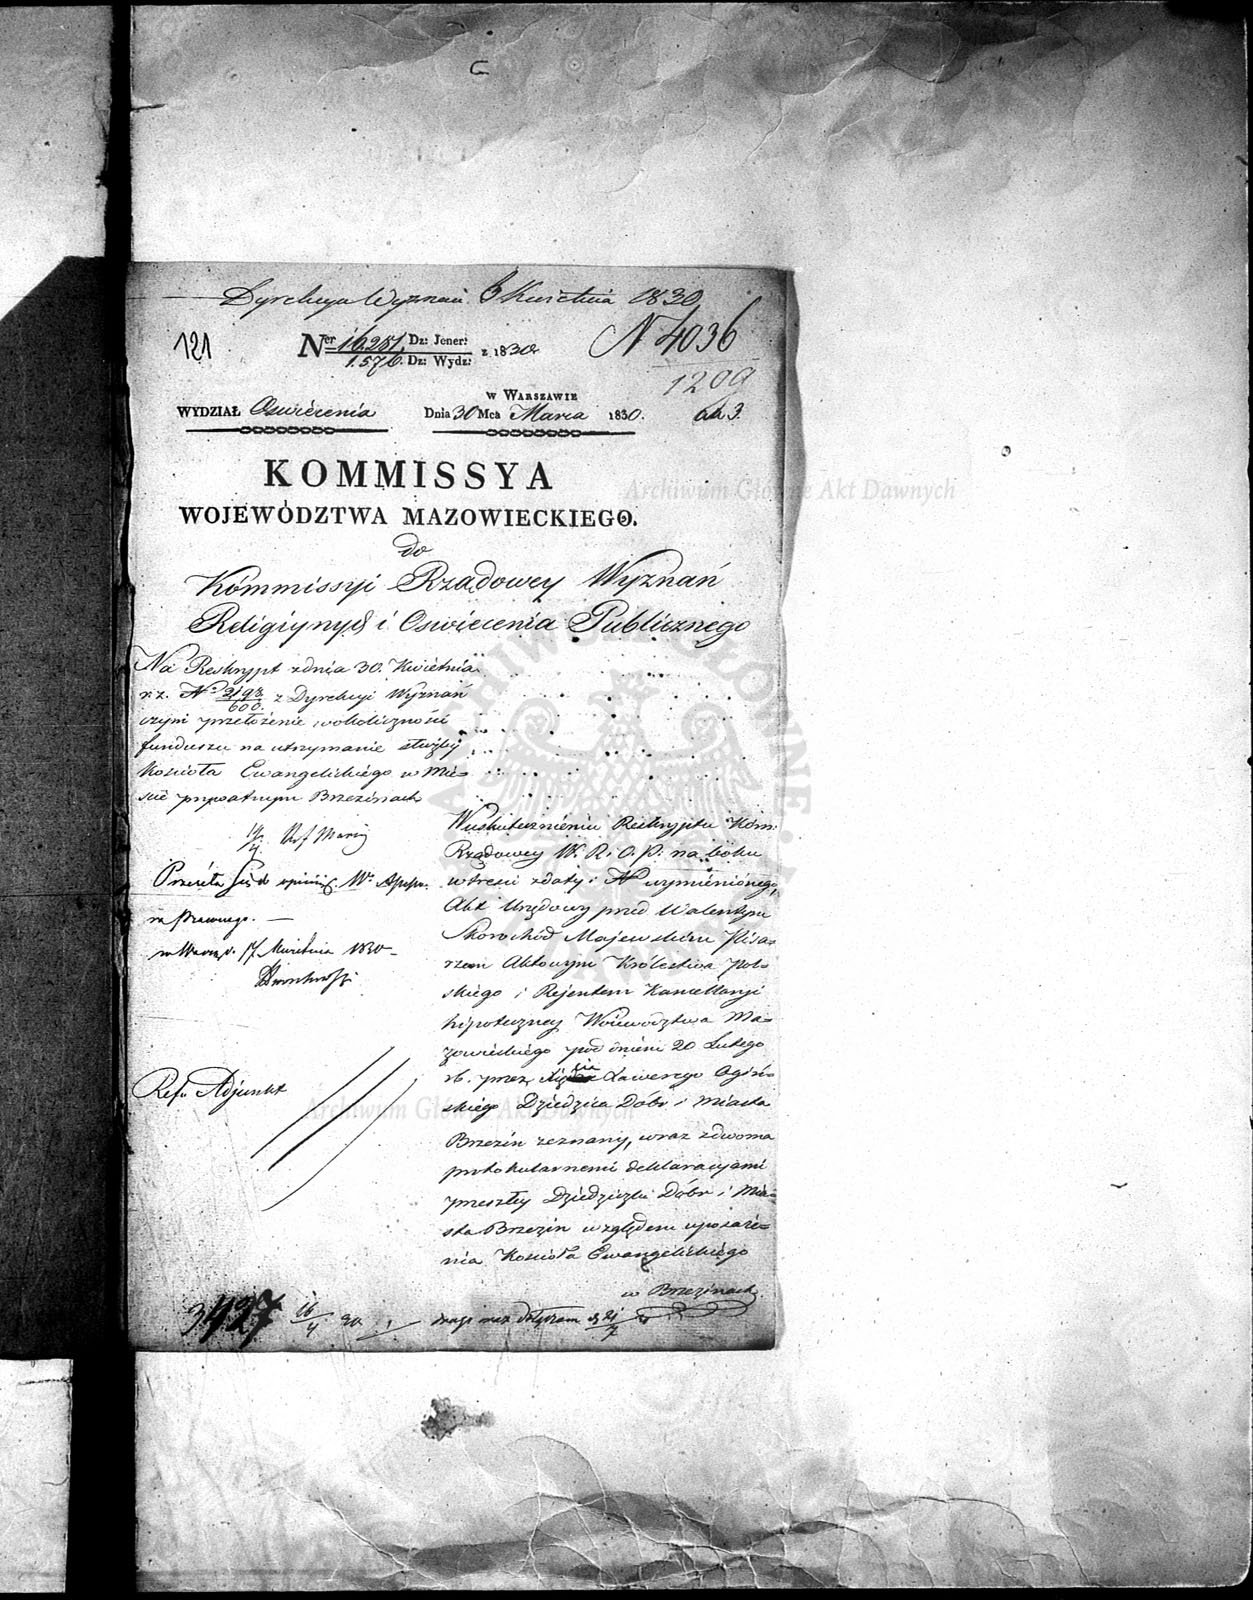 Dyrekcya Wyznań 6 Kwietnia 1830
121
Ner 16281 Dz: Jener:
1576. Dz: Wydz: z 1830
N 4036
1209
w Warszawie
WYDZIAŁ Oswiecenia
Dnia 30 Mca Marca 1830.
KOMMISSYA
WOJEWÓDZTWA MAZOWIECKIEGO.
do
Kommissyi Rządowey Wyznań
Religiynych i Oswiecenia Publicznego
Na Reskrypt z dnia 30. Kwietnia
r. z. No 2198/600. z Dyrekcyi Wyznań
czyni przełożenie w okoliczności
funduszu na utrzymanie służby
Kościoła Ewangelickiego w Mie=
scie prywatnym Brzezinach
Przesyła się do opinij
na Prawnego. —
17 Kwietnia 1830 —
Refer Adjunkt
W uskutecznieniu Reskryptu Kom:
Rządowey W. R. i O. P. na boku
w tresci z daty i No wymienionego,
Akt Urzędowy przed Walentym
Skorochód Majewskim Pisa=
rzem Aktowym Królestwa Pol=
skiego i Rejentem Kancellaryi
hipoteczney Woiewództwa Ma=
zowieckiego pod dniem 20 Lutego
r b. przez Xięcia Xawerego Ogiń=
skiego Dziedzica Dóbr i Miasta
Brzezin zeznany, wraz z dwoma
protokularnemi deklaracyami
przeszłey Dziedziczki Dóbr i Mia=
sta Brzezin względem uposaże=
nia Kościoła Ewangelickiego
w Brzezinach
3427 16/4 30
Archiwum Główne Akt Dawnych
Archiwum Główne Akt Dawnych